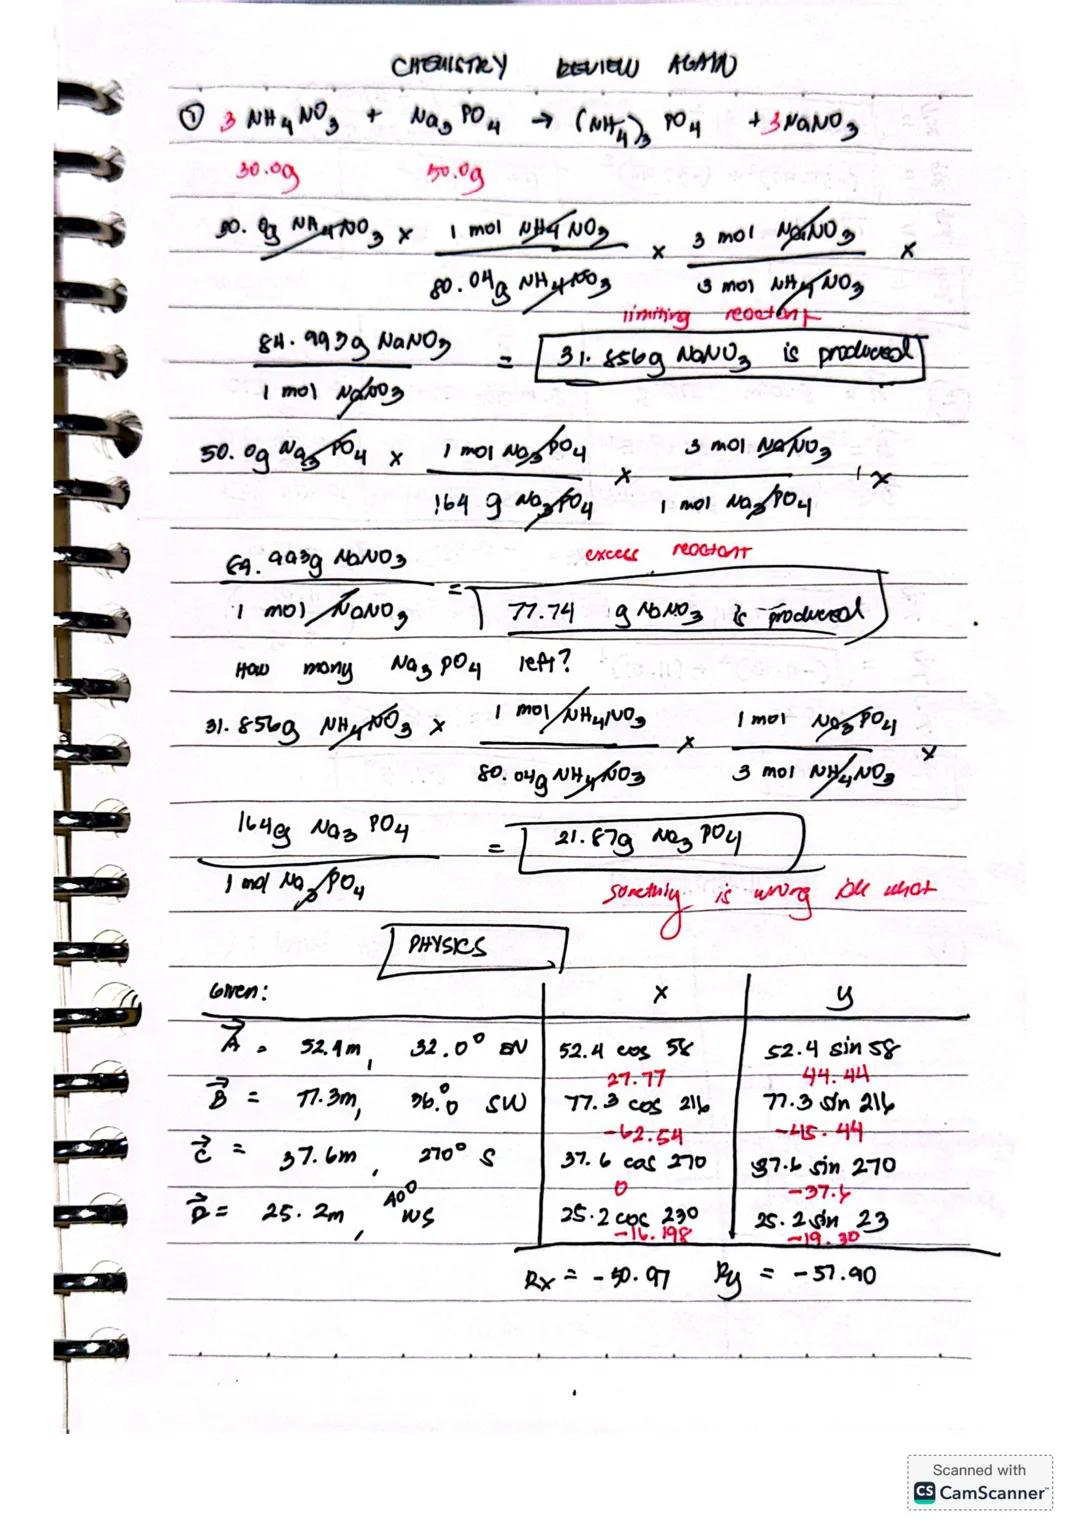 CHEMISTRY REVIEW AGAIN
① 3 NH4NO3 + Na3PO4 → (NH4)3 PO4 + 3NaNO3
30.0g 50.0g
30.0g NH4NO3 x 1 mol NH4NO3 / 80.04g NH4NO3 x 3 mol NaNO3 / 3 mol NH4NO3 x
limiting reactant
84.993g NaNO3 / 1 mol NaNO3 = 31.856g NaNO3 is produced
50.0g Na3PO4 x 1 mol Na3PO4 / 164 g Na3PO4 x 3 mol NaNO3 / 1 mol Na3PO4 x
excess reactant
84.993g NaNO3 / 1 mol NaNO3 = 77.74 g NaNO3 is produced
How many Na3PO4 left?
31.856g NH4NO3 x 1 mol NH4NO3 / 80.04g NH4NO3 x 1 mol Na3PO4 / 3 mol NH4NO3 x
164g Na3PO4 / 1 mol Na3PO4 = 21.87g Na3PO4
something is wrong idk what
PHYSICS
Given: x y
A = 52.4m, 32.0° EN 52.4 cos 58 52.4 sin 58
27.77 44.44
B = 77.3m, 36.0° SW 77.3 cos 216 77.3 sin 216
-62.54 -45.44
C = 37.6m, 270° S 37.6 cos 270 37.6 sin 270
0 -37.6
D = 25.2m, 40° WS 25.2 cos 230 25.2 sin 23
-16.198 -19.30
Rx = -50.97 Ry = -57.90
Scanned with
CS CamScanner